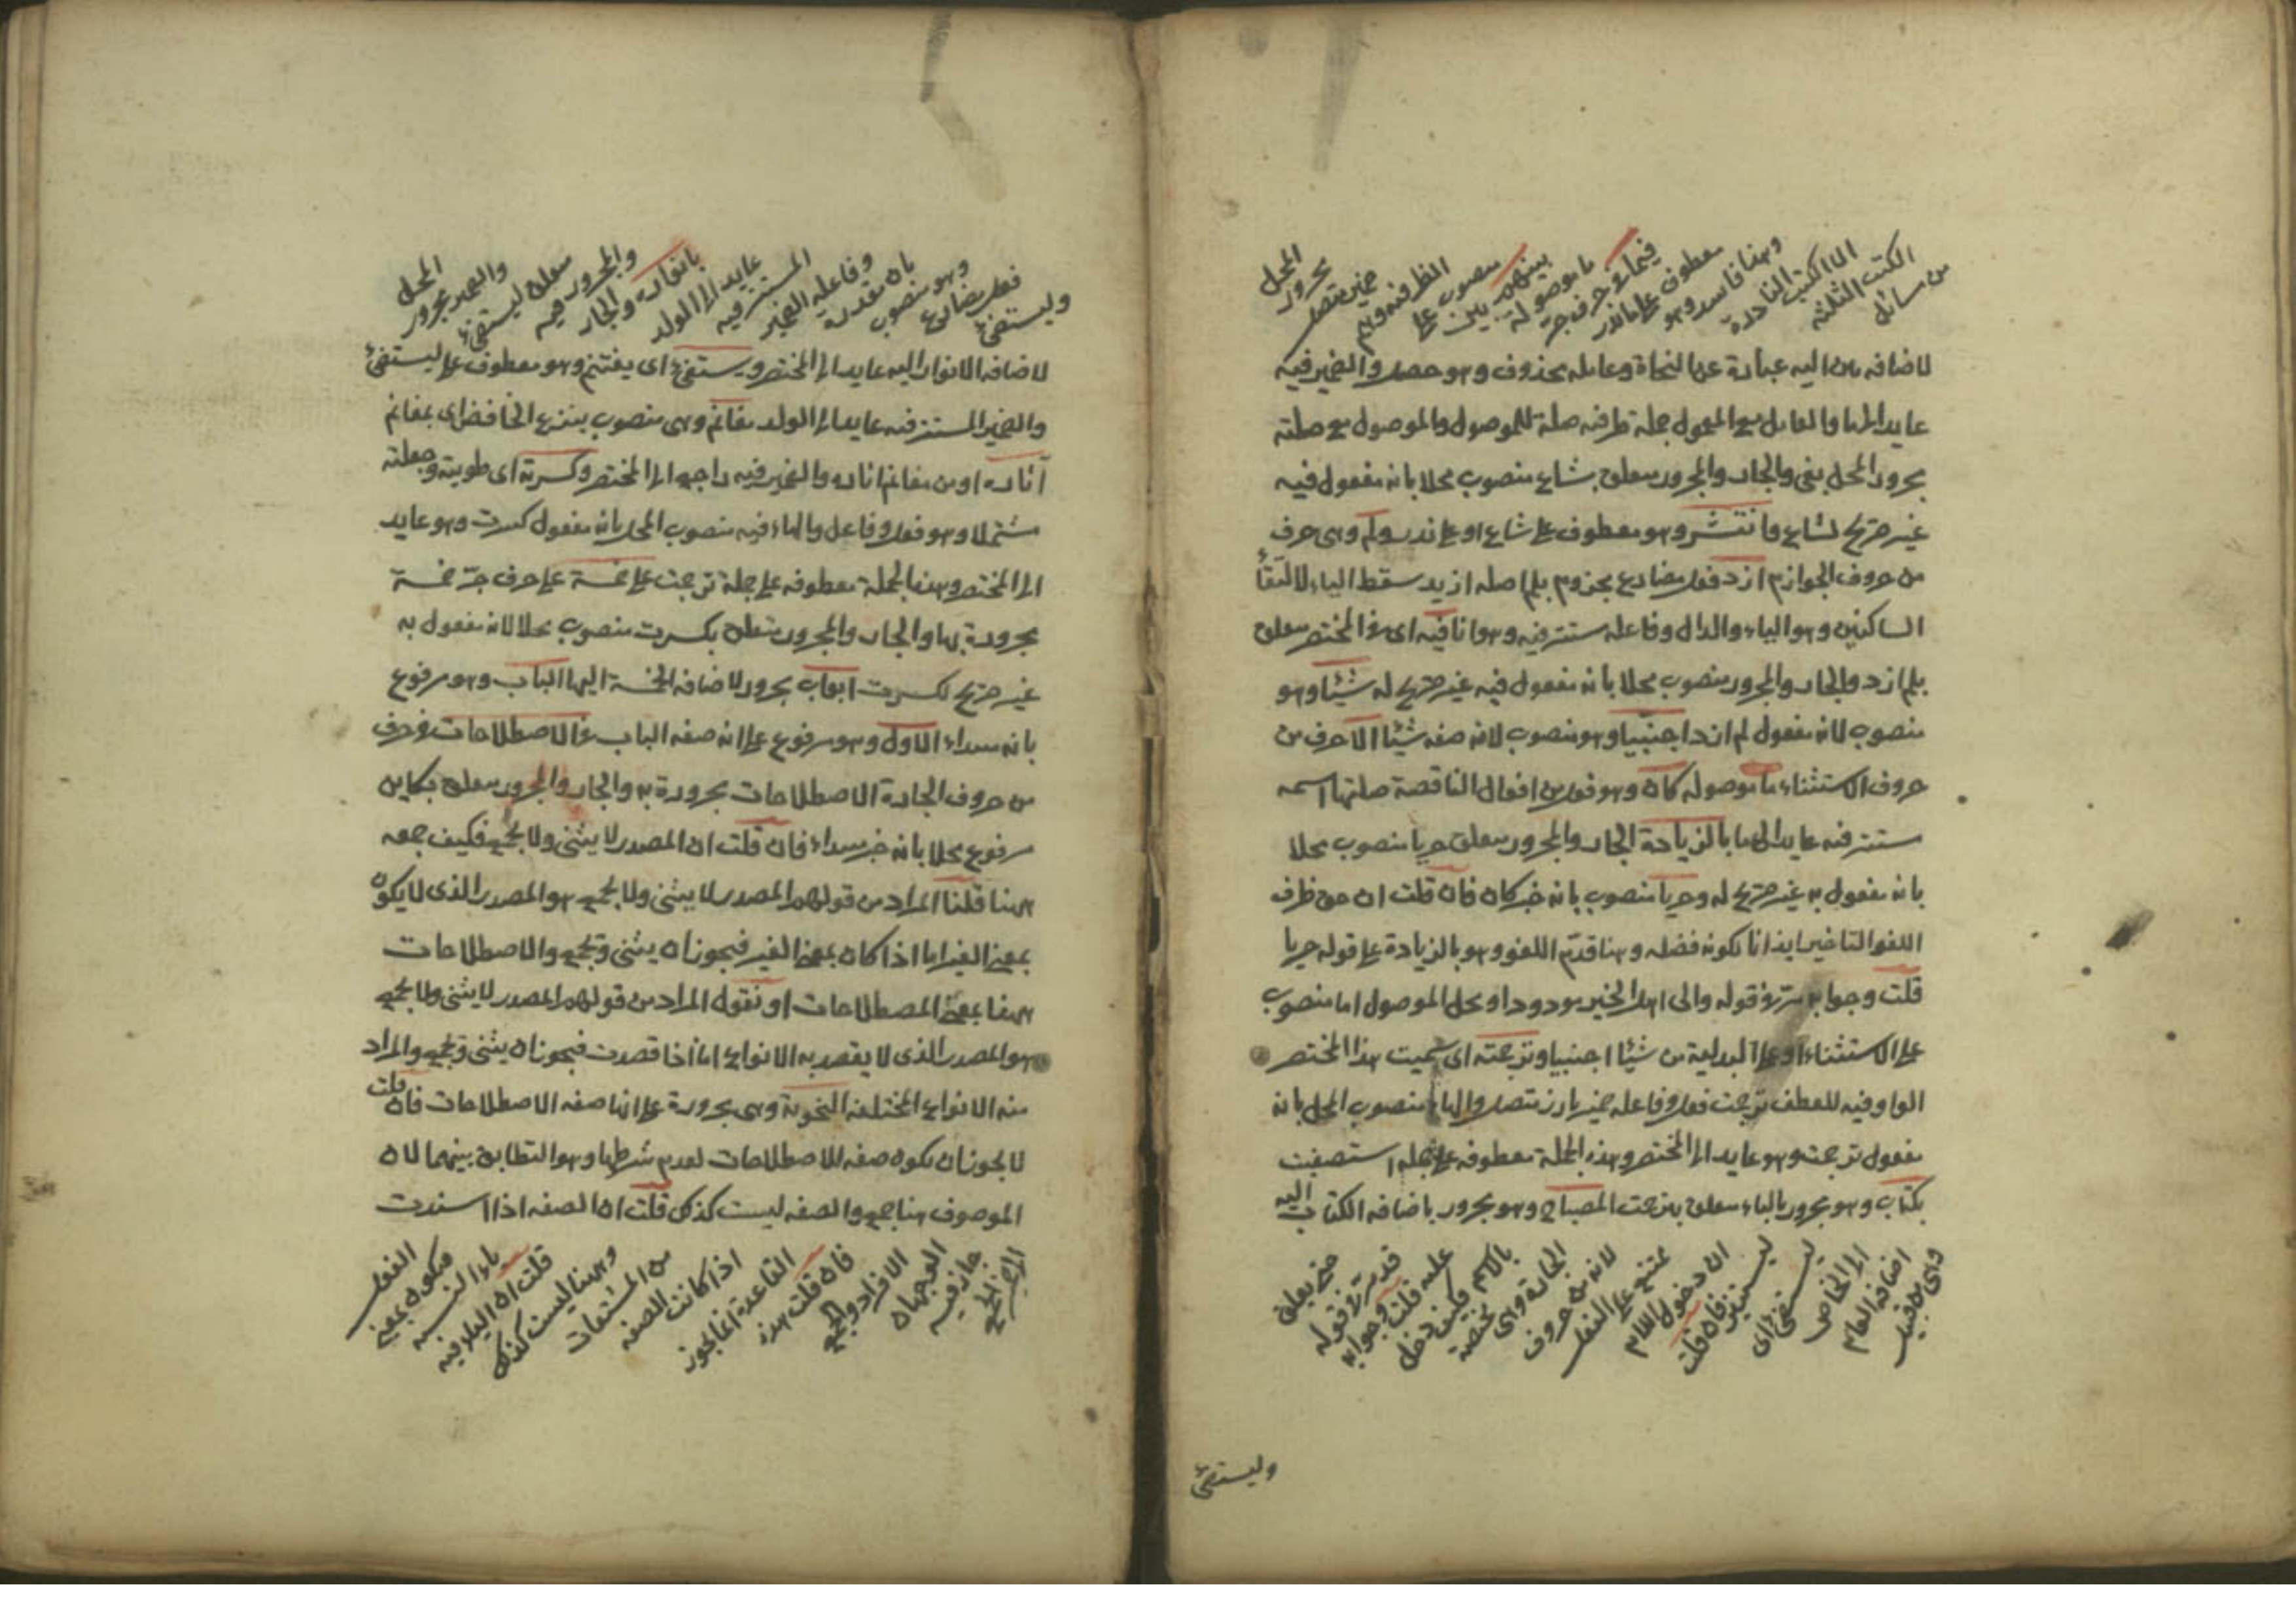 من مسائل
الكتب الثلثة
الا الكتب النادرة
وهذا فاسد وهو
معطوف على ما ندر
فيما في حرف جر
ما موصولة
بينهم بين
منصوب على
الظرفية وهم
ضمير متصل
مجرور
المحل
لاضافه بين اليه عبارة عن النحاة وعامله محذوف وهو حصل والضمير فيه
عايد الى ما والعامل مع المعمول جملة ظرفيه صلة للموصول والموصول مع صلته
مجرور المحل بفى والجار والمجرور متعلق بشاع منصوب محلا بانه مفعول فيه
غير صريح لشاع وانتشر وهو معطوف على شاع او على ندر ولم وهى حرف
من حروف الجوازم ازد فعل مضارع مجزوم بلم اصله ازيد سقط الياء لالتقاء
الساكنين وهو الياء والدال وفاعله مستتر فيه وهو انا فيه اى في المختصر متعلق
بلم ازد والجار والمجرور منصوب محلا بانه مفعول فيه غير صريح له شيئا وهو
منصوب لانه مفعول لم ازد اجنبيا وهو منصوب لانه صفه شيئا الا حرف من
حروف الاستثناء ما موصوله كان وهو فعل من افعال الناقصة صلتها اسمه
مستتر فيه عايد الى ما بالزيادة الجار والمجرور متعلق حريا منصوب محلا
بانه مفعول به غير صريح له وحريا منصوب بانه خبر كان فان قلت ان حق ظرف
اللغو التاخير ايذانا بكونه فضله وهنا قدّم اللغو وهو بالزيادة على قوله حريا
قلت وجوابه مرّ في قوله والى اهل الخير مودودا ومحل الموصول اما منصوب
على الاستثناء او على البدلية من شيئا اجنبيا وترجمته اى سميت هذا المختصر
الواو فيه للعطف ترجمت فعل وفاعله ضمير بارز متصل والهاء منصوب المحل بانه
مفعول ترجمت وهو عايد الى المختصر وهذه الجملة معطوفه على جمله استصفيت
بكتاب وهو مجرور بالباء متعلق بترجمت المصباح وهو مجرور باضافه الكتاب اليه
وهى من قبيل
اضافه العام
الى الخاص
ليستضئ اى
ليستنير فان قلت
ان دخول اللام
ممتنع على الفعل
لانه من حروف
الجارة وهى مختصة
بالاسم فكيف دخل
عليه قلت وجوابه
قد مرّ في قوله
حتى يعلق
وليستضئ
وليستضئ
فعل مضارع
وهو منصوب
بان مقدرة
وفاعله الضمير
المستتر فيه
عايد الى الولد
بانواره والجار
والمجرور فيه
متعلق ليستضئ
والضمير مجرور
المحل
لاضافه الانوار اليه عايد الى المختصر ويستغنم اى يغتنم وهو معطوف على ليستضئ
والضمير المستتر فيه عايد الى الولد مغانم وهى منصوب بنزع الخافض اى بمغانم
آثاره او من مغانم اثاره والضمير فيه راجع الى المختصر وكسرته اى طويته وجعلته
مشتملا وهو فعل وفاعل والهاء فيه منصوب المحل بانه مفعول كسرت وهو عايد
الى المختصر وهذه الجملة معطوفه على جملة ترجمت على خمسة على حرف جرّ خمسة
مجرورة بها والجار والمجرور متعلق بكسرت منصوب محلا لانه مفعول به
غير صريح لكسرت ابواب مجرور لاضافه الخمسة اليها الباب وهو مرفوع
بانه مبتداء الاول وهو مرفوع على انه صفه الباب في الاصطلاحات في حرف
من حروف الجارة الاصطلاحات مجرورة به والجار والمجرور متعلق بكاين
مرفوع محلا بانه خبر مبتداء فان قلت ان المصدر لا يثنى ولا يجمع فكيف جمعه
ههنا قلنا المراد من قولهم المصدر لا يثنى ولا يجمع هو المصدر الذى لا يكون
بمعنى الغير اما اذا كان بمعنى الغير فيجوز ان يثنى ويجمع والاصطلاحات
ههنا بمعنى المصطلاحات او نقول المراد من قولهم المصدر لا يثنى ولا يجمع
هو المصدر الذى لا يقصد به الانواع اما اذا قصدت فيجوز ان يثنى ويجمع والمراد
منه الانواع المختلفة النحوية وهى مجرورة على انها صفه الاصطلاحات فان قلت
لا يجوز ان يكون صفه للاصطلاحات لعدم شرطها وهو التطابق بينهما لان
الموصوف هنا جمع والصفه ليست كذلك قلت ان الصفه اذا اسندت
الى ضمير الجمع
جاز فيه
الوجهان
الافراد والجمع
فان قلت هذه
القاعدة انما يجوز
اذا كانت الصفه
من المشتقات
وههنا ليست كذلك
قلت ان الياء فيه
ياء النسبه
فيكون بمعنى
الفعل